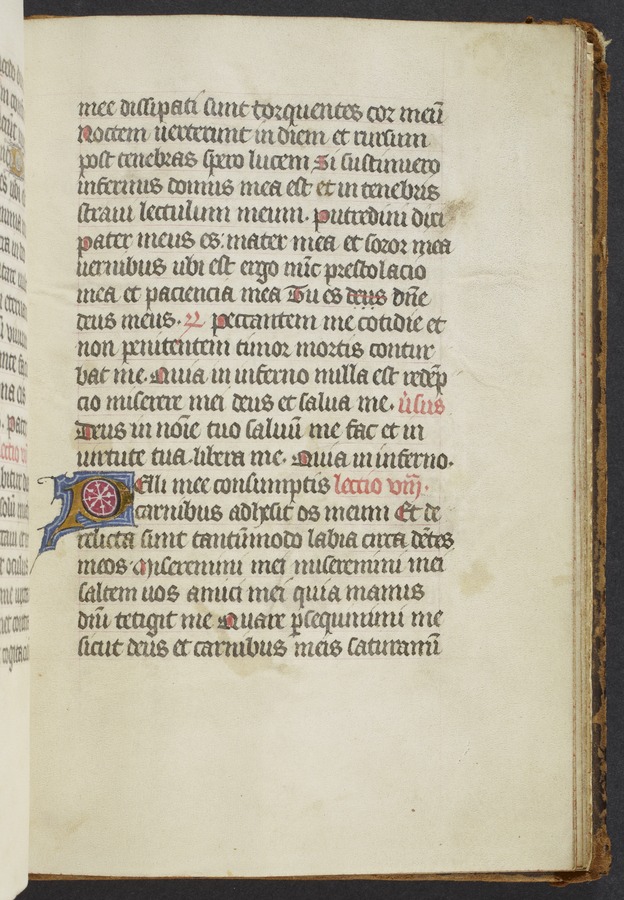 mee dissipati sunt torquentes cor meū
Noctem uerterunt in diem et rursum
post tenebras spero lucem Si sustinuero
infernus domus mea est et in tenebris
straui lectulum meum. putredini dixi
pater meus es: mater mea et soror mea
uermibus ubi est ergo nūc prestolacio
mea et paciencia mea Tu es deus dn̄e
deus meus. ℟ peccantem me cotidie et
non penitentem timor mortis contur
bat me. Quia in inferno nulla est redēp
cio miserere mei deus et salua me. ūsus
Deus in nōie tuo saluū me fac et in
uirtute tua libera me. Quia in inferno.
Pelli mee consumptis lectio viij.
carnibus adhesit os meum Et de
relicta sunt tantūmodo labia circa dētes
meos Miseremini mei miseremini mei
saltem uos amici mei quia manus
dn̄i tetigit me Quare ꝑsequimini me
sicut deus et carnibus meis saturaminī